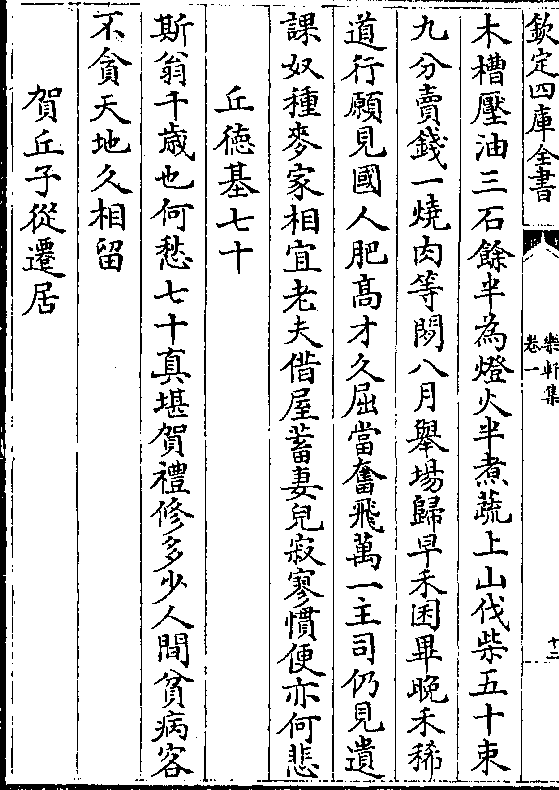 欽定四庫全書
樂軒集
卷一
十二
木槽壓油三石餘半為燈火半煮蔬上山伐柴五十束
九分賣錢一燒肉等閱八月舉場歸早禾困畢晩禾稀
道行願見國人肥高才久屈當奮飛萬一主司仍見遺
課奴種麥家相宜老夫借屋蓄妻兒寂寥慣便亦何悲
丘徳基七十
斯翁千歳也何愁七十真堪賀禮修多少人間貧病客
不貪天地久相留
賀丘子從遷居